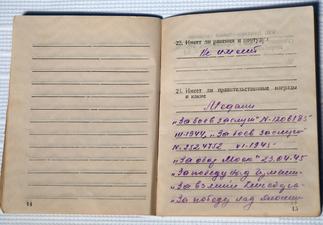 22. Имеет ли ранения и контузии
Не имеет
23. Имеет ли правительственные награды
и какие
Медали
"За боев заслуги" N-1208185
III-1944, "За боев заслуги"
N. 2524752 VI-1945
"За обор Моск" 23.04.45
"За победу над Германи
"За взятие Кенигсберга
"За победу над Японии
14
15